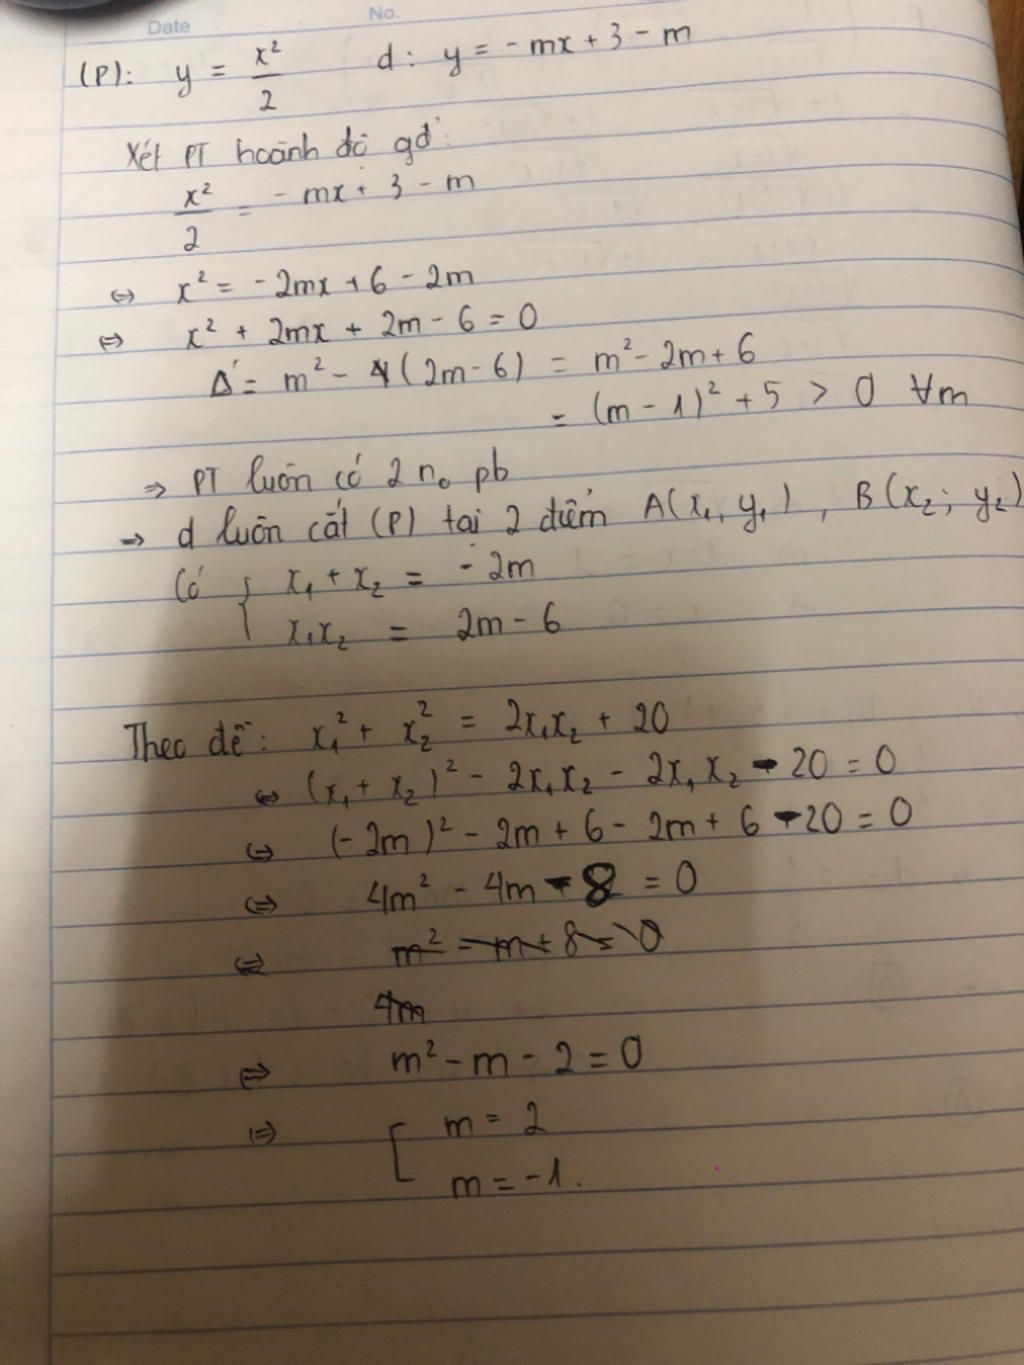 Date No.
(P): y = x²/2 d: y = -mx + 3 - m
Xét PT hoành độ gđ:
x²/2 = -mx + 3 - m
⇔ x² = -2mx + 6 - 2m
⇔ x² + 2mx + 2m - 6 = 0
Δ' = m² - (2m - 6) = m² - 2m + 6
= (m - 1)² + 5 > 0 ∀m
⇒ PT luôn có 2 n₀ pb
→ d luôn cắt (P) tại 2 điểm A(x₁, y₁), B(x₂; y₂)
Có { x₁ + x₂ = -2m
x₁x₂ = 2m - 6
Theo đề: x₁² + x₂² = 2x₁x₂ + 20
⇔ (x₁ + x₂)² - 2x₁x₂ - 2x₁x₂ - 20 = 0
⇔ (-2m)² - 2m + 6 - 2m + 6 - 20 = 0
⇔ 4m² - 4m - 8 = 0
⇔ m² - m + 8 = 0
4m
⇔ m² - m - 2 = 0
⇔ [ m = 2
m = -1.